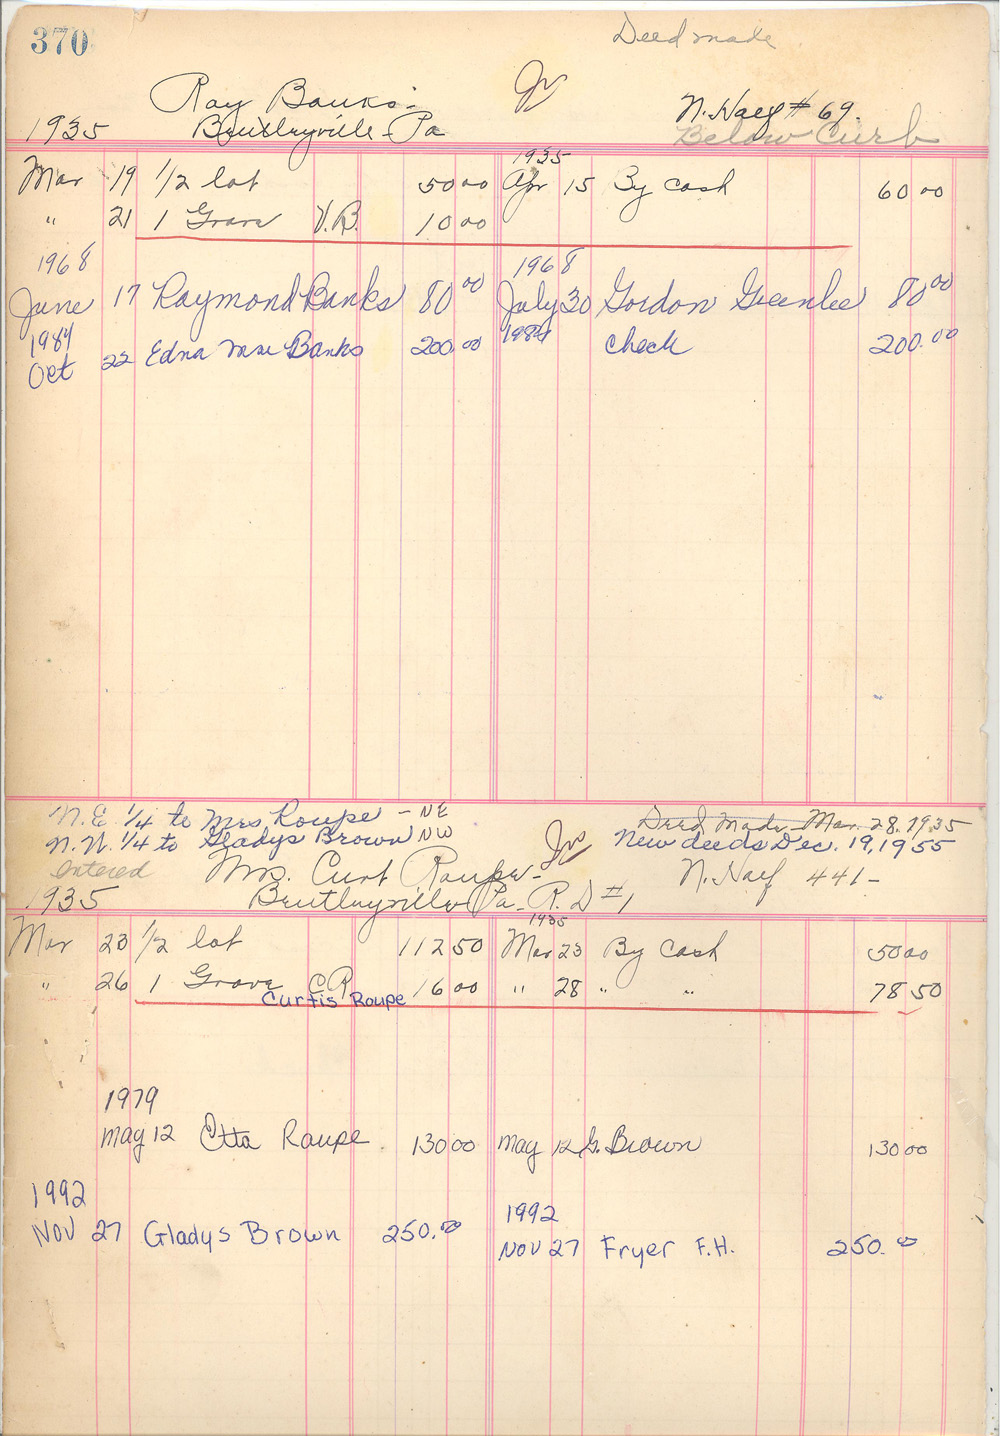 370
Deed made
Ray Banks - Jr N. Half # 69.
1935 Bentleyville - Pa Below Curb
Mar 19 1/2 lot 50 00 1935 Apr 15 By cash 60 00
" 21 1 Grave V.B. 10 00
1968 1968
June 17 Raymond Banks 80 00 July 30 Gordon Greenlee 80 00
1984 1984
Oct 22 Edna Mae Banks 200.00 check 200.00
N.E. 1/4 to Mrs Roupe - NE Deed Made Mar. 28, 1935
N.W. 1/4 to Gladys Brown NW Jr New deeds Dec. 19, 1955
entered Mrs. Curt Roupe - N. Half 441 -
1935 Bentleyville Pa - R. D #1
1935
Mar 23 1/2 lot 112 50 Mar 23 By Cash 50 00
" 26 1 Grave C.R. 16 00 " 28 " " 78 50
Curtis Roupe
1979
May 12 Etta Roupe 130 00 May 12 G. Brown 130 00
1992 1992
Nov 27 Gladys Brown 250.00 Nov 27 Fryer F.H. 250.00